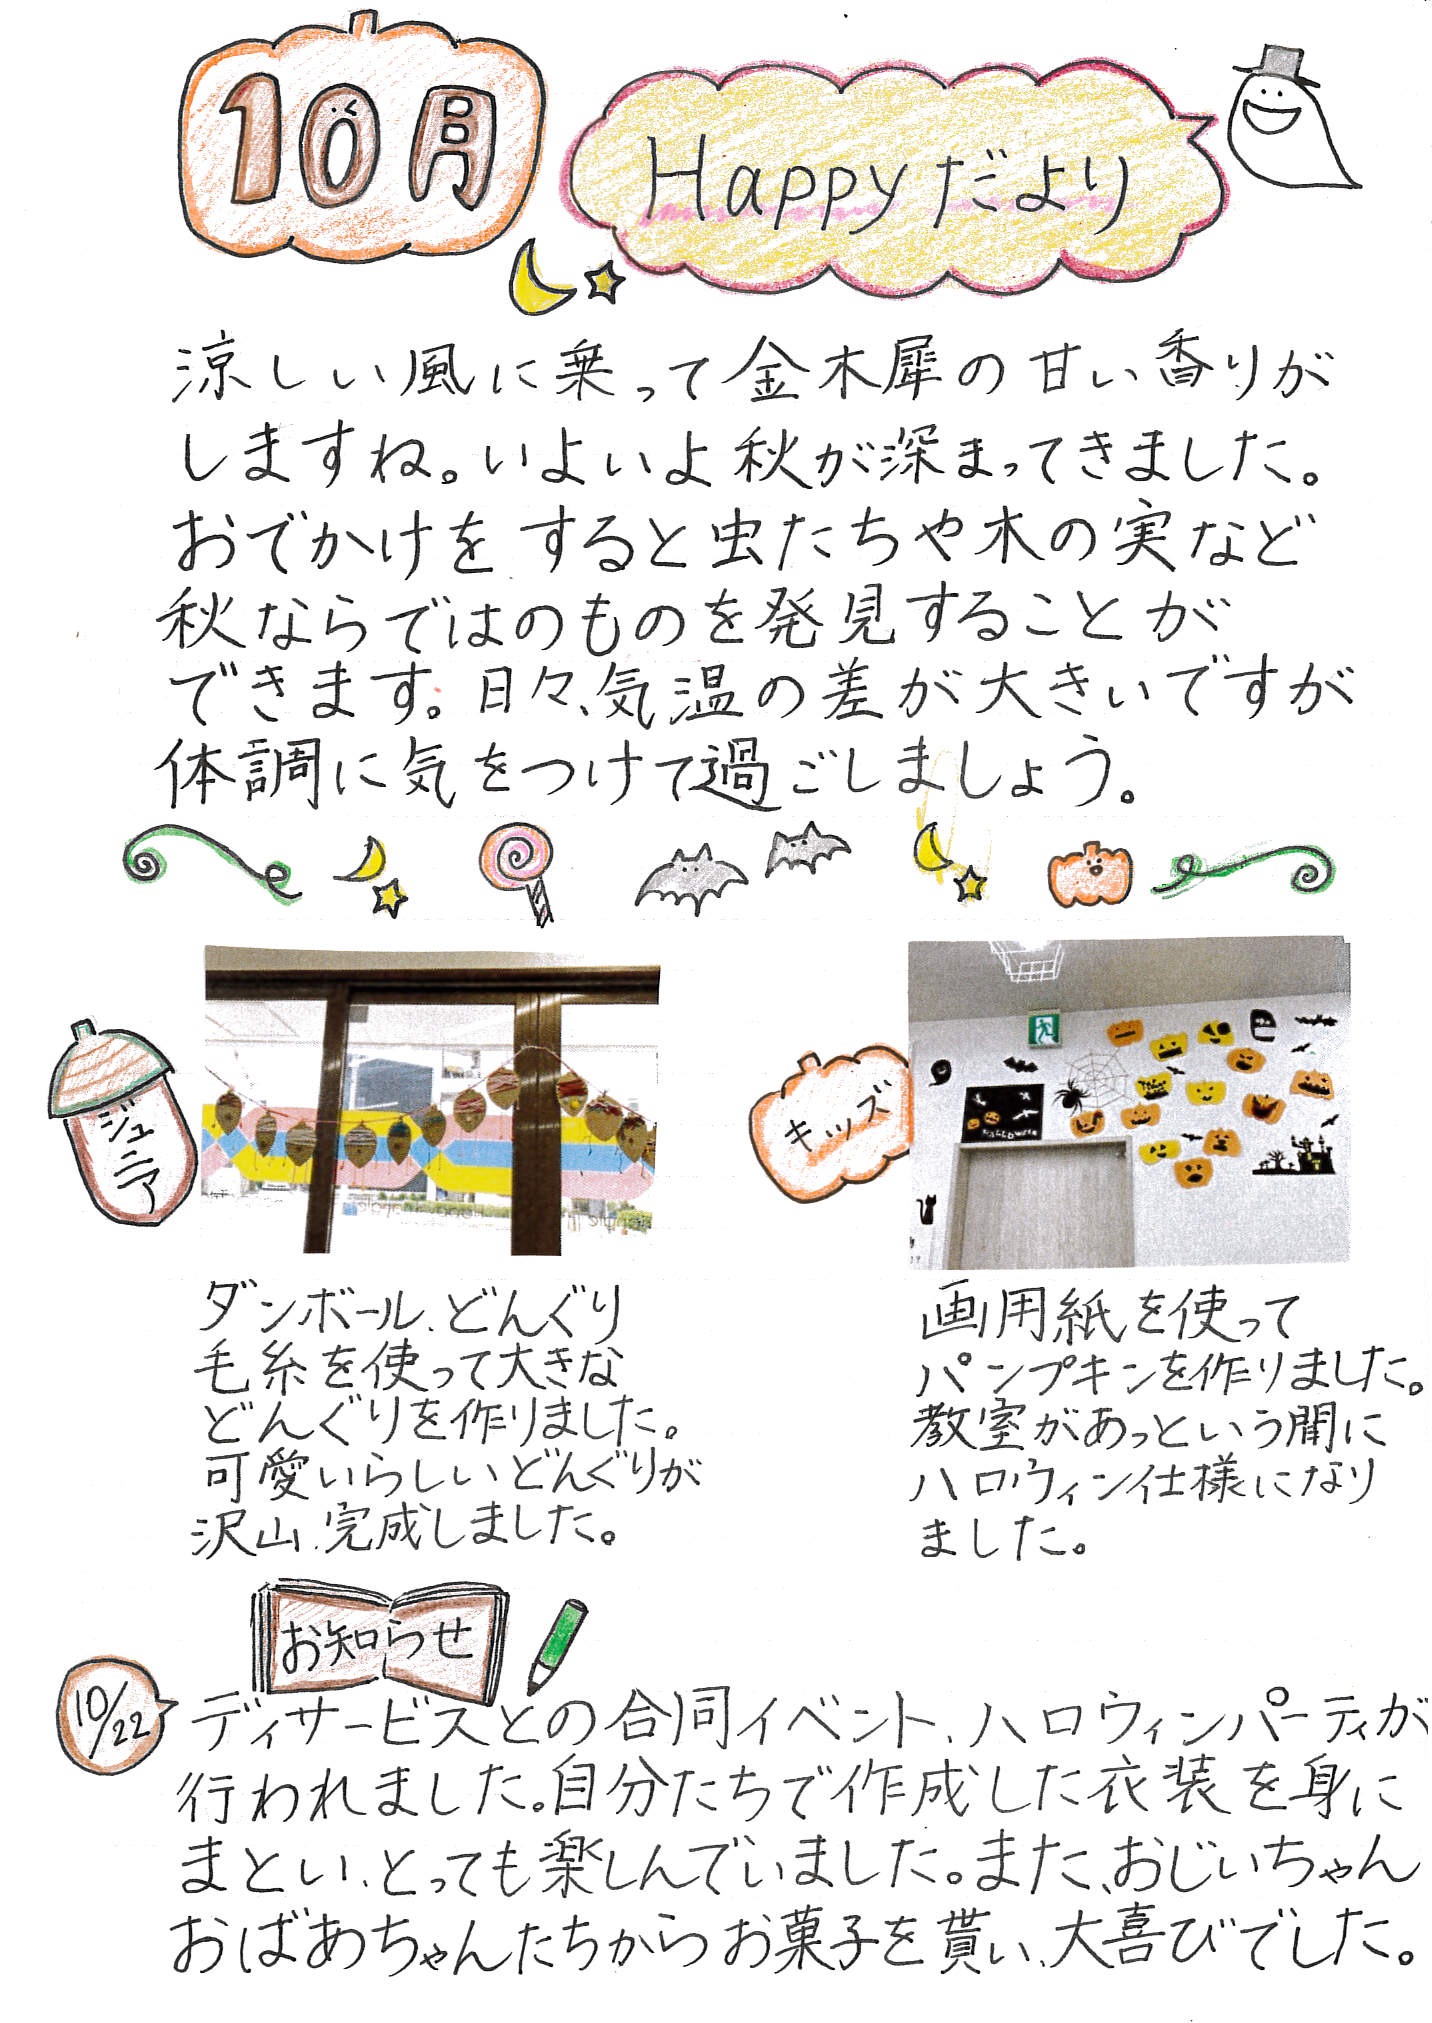 10月
Happyだより
涼しい風に乗って金木犀の甘い香りが
しますね。いよいよ秋が深まってきました。
おでかけをすると虫たちや木の実など
秋ならではのものを発見することが
できます。日々、気温の差が大きいですが
体調に気をつけて過ごしましょう。
ジュニア
キッズ
HALLOWEEN
ダンボール、どんぐり
毛糸を使って大きな
どんぐりを作りました。
可愛いらしいどんぐりが
沢山、完成しました。
画用紙を使って
パンプキンを作りました。
教室があっという間に
ハロウィン仕様になり
ました。
お知らせ
10/22
ディサービスとの合同イベント、ハロウィンパーティが
行われました。自分たちで作成した衣装を身に
まとい、とっても楽しんでいました。また、おじいちゃん
おばあちゃんたちからお菓子を貰い、大喜びでした。